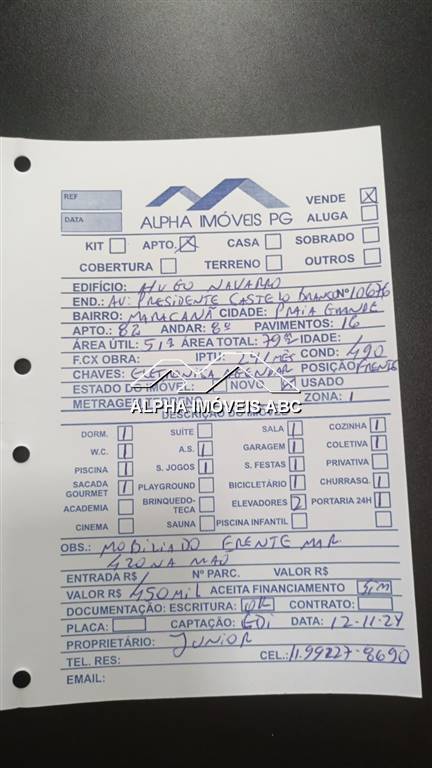 REF
DATA
ALPHA IMÓVEIS PG
VENDE X
ALUGA
KIT APTO. X CASA SOBRADO
COBERTURA TERRENO OUTROS
EDIFÍCIO: HUGO NAVARRO
END.: AV: PRESIDENTE CASTELO BRANCO Nº 10676
BAIRRO: MARACANÃ CIDADE: PRAIA GRANDE
APTO.: 82 ANDAR: 8º PAVIMENTOS: 16
ÁREA ÚTIL: 51² ÁREA TOTAL: 79² IDADE:
F.CX OBRA: IPTU: 241 MÊS COND: 490
CHAVES: ELETRONICA AGENDAR POSIÇÃO FRENTE
ESTADO DO IMÓVEL: NOVO X USADO
METRAGEM ZONA: 1
ALPHA IMÓVEIS ABC
DESCRIÇÃO DO IMÓVEL
DORM. 1 SUÍTE SALA 1 COZINHA 1
W.C. 1 A.S. 1 GARAGEM 1 COLETIVA 1
PISCINA 1 S. JOGOS 1 S. FESTAS 1 PRIVATIVA
SACADA GOURMET 1 PLAYGROUND BICICLETÁRIO 1 CHURRASQ. 1
ACADEMIA BRINQUEDO-TECA ELEVADORES 2 PORTARIA 24H 1
CINEMA SAUNA PISCINA INFANTIL
OBS.: MOBILIADO FRENTE MAR.
420 NA MÃO
ENTRADA R$ Nº PARC. VALOR R$
VALOR R$ 450 MIL ACEITA FINANCIAMENTO SIM
DOCUMENTAÇÃO: ESCRITURA: OK CONTRATO:
PLACA: CAPTAÇÃO: EDI DATA: 12-11-24
PROPRIETÁRIO: JUNIOR
TEL. RES: CEL.: 11.99227-8690
EMAIL: